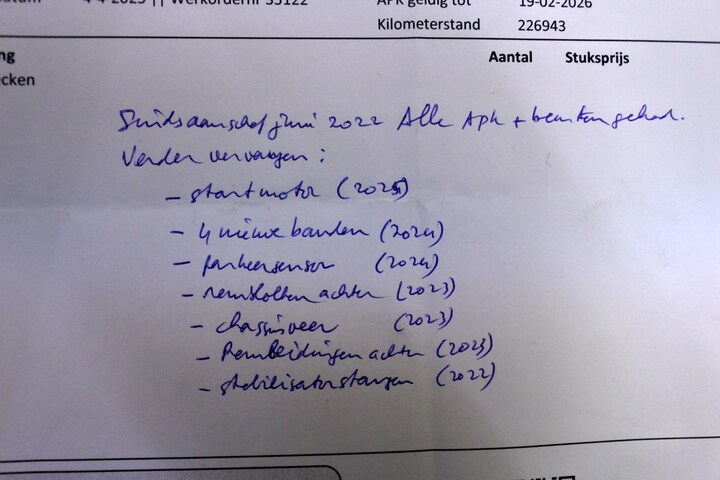 4-4-2025 || Werkordernr 35122
APK geldig tot 19-02-2026
Kilometerstand 226943
Aantal Stuksprijs
Sinds aanschaf juni 2022 Alle Apk + beurten gehad.
Verder vervangen :
- startmotor (2025)
- 4 nieuwe banden (2024)
- parkeersensor (2024)
- remklotten achter (2023)
- chassisveer (2023)
- Remleidingen achter (2023)
- stabilisatorstangen (2022)